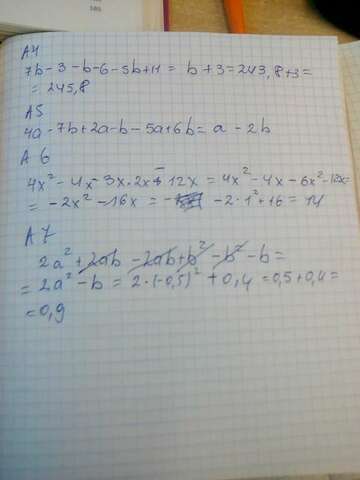 A4
7b - 3 - b - 6 - 5b + 11 = b + 3 = 243,8 + 3 =
= 245,8
A5
4a - 7b + 2a - b - 5a + 6b = a - 2b
A6
4x² - 4x - 3x · 2x - 12x = 4x² - 4x - 6x² - 12x =
= -2x² - 16x = - -2 · 1² + 16 = 14
A7
2a² + 2ab - 2ab + b² - b² - b =
= 2a² - b = 2 · (-0,5)² + 0,4 = 0,5 + 0,4 =
= 0,9